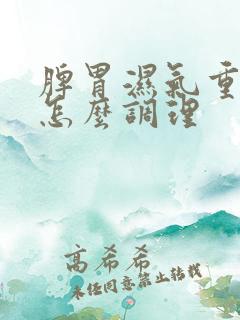 脾胃濕氣重
怎麼調理
高希希
未經同意禁止轉載